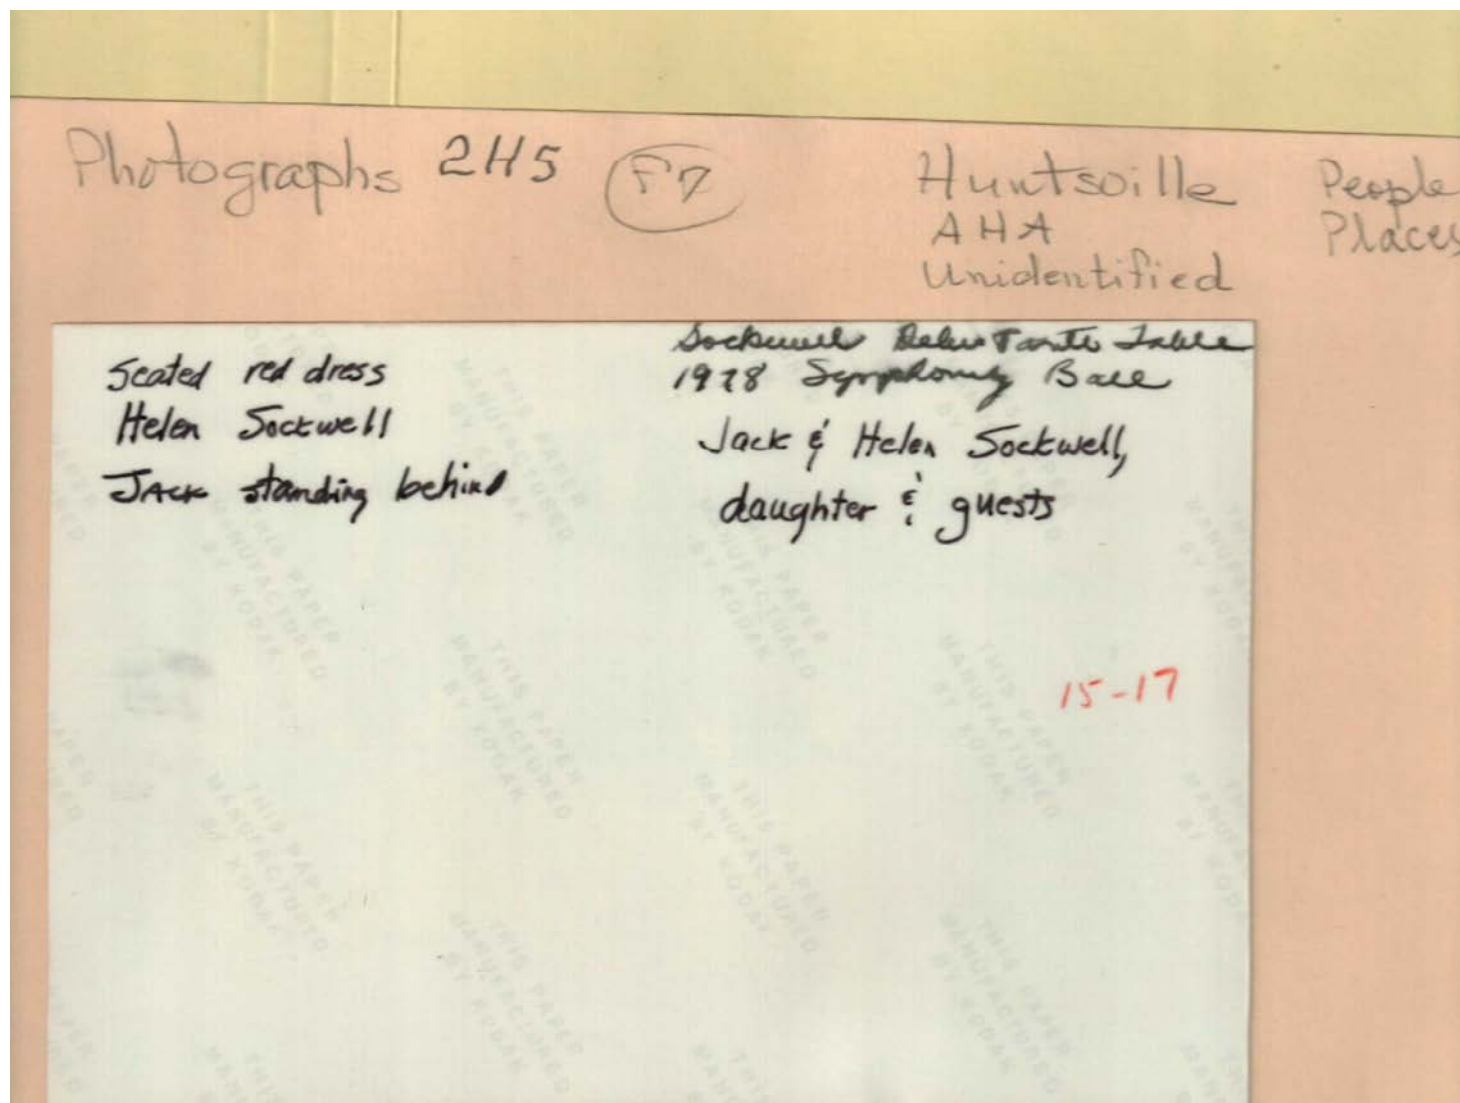 Photographs 2H5 F7
Huntsville
AHA
Unidentified
People
Places
Seated red dress
Helen Sockwell
Jack standing behind
Sockwell Debutante Table
1978 Symphony Ball
Jack & Helen Sockwell,
daughter & guests
15-17
THIS PAPER
MANUFACTURED
BY KODAK